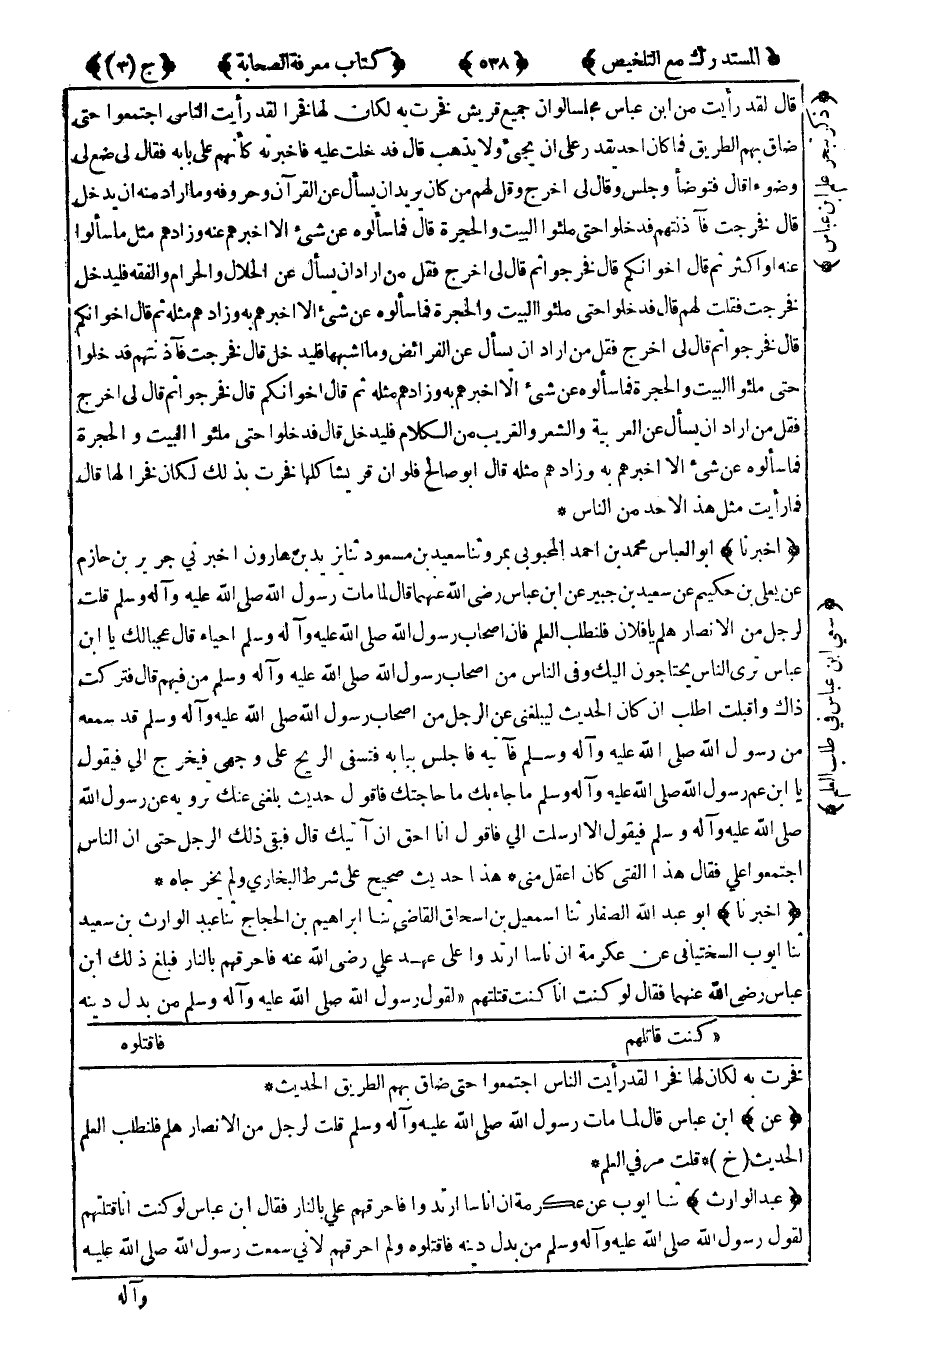 ﴿ المستدرك مع التلخيص ﴾ ﴿ ٥٣٨ ﴾ ﴿ كتاب معرفة الصحابة ﴾ ﴿ ج (٣) ﴾
قال لقد رأيت من ابن عباس مجلسا لو ان جميع قريش فخرت به لكان لها فخرا لقد رأيت الناس اجتمعوا حتى
ضاق بهم الطريق فما كان احد يقدر على ان يجيئ ولا يذهب قال فدخلت عليه فاخبرته كأنهم على بابه فقال لى ضع لى
وضوءا قال فتوضأ وجلس وقال لى اخرج وقل لهم من كان يريد ان يسأل عن القرآن وحروفه وما اراد منه ان يدخل
قال فخرجت فآذنتهم فدخلوا حتى ملئوا البيت والحجرة قال فما سألوه عن شئ الا اخبرهم عنه وزادهم مثل ما سألوا
عنه او اكثر ثم قال اخوانكم قال فخرجوا ثم قال لى اخرج فقل من اراد ان يسأل عن الحلال والحرام والفقه فليدخل
فخرجت فقلت لهم قال فدخلوا حتى ملئوا البيت والحجرة فما سألوه عن شئ الا اخبرهم به وزادهم مثله ثم قال اخوانكم
قال فخرجوا ثم قال لى اخرج فقل من اراد ان يسأل عن الفرائض وما اشبهها فليدخل قال فخرجت فآذنتهم فدخلوا
حتى ملئوا البيت والحجرة فما سألوه عن شئ الا اخبرهم به وزادهم مثله ثم قال اخوانكم قال فخرجوا ثم قال لى اخرج
فقل من اراد ان يسأل عن العربية والشعر والغريب من الكلام فليدخل قال فدخلوا حتى ملئوا البيت والحجرة
فما سألوه عن شئ الا اخبرهم به وزادهم مثله قال ابو صالح فلو ان قريشا كلها فخرت بذلك لكان فخرا لها قال
فما رأيت مثل هذا لاحد من الناس *
﴿ اخبرنا ﴾ ابو العباس محمد بن احمد المحبوبي بمرو ثنا سعيد بن مسعود ثنا يزيد بن هارون اخبرني جرير بن حازم
عن يعلى بن حكيم عن سعيد بن جبير عن ابن عباس رضى الله عنهما قال لما مات رسول الله صلى الله عليه وآله وسلم قلت
لرجل من الانصار هلم يا فلان فلنطلب العلم فان اصحاب رسول الله صلى الله عليه وآله وسلم احياء قال عجبا لك يا ابن
عباس ترى الناس يحتاجون اليك وفى الناس من اصحاب رسول الله صلى الله عليه وآله وسلم من فيهم قال فتركت
ذاك واقبلت اطلب ان كان الحديث ليبلغنى عن الرجل من اصحاب رسول الله صلى الله عليه وآله وسلم قد سمعه
من رسول الله صلى الله عليه وآله وسلم فآتيه فاجلس ببابه فتسفى الريح على وجهى فيخرج الي فيقول
يا ابن عم رسول الله صلى الله عليه وآله وسلم ما جاء بك ما حاجتك فاقول حديث بلغنى عنك ترويه عن رسول الله
صلى الله عليه وآله وسلم فيقول الا ارسلت الي فاقول انا احق ان آتيك قال فبقى ذلك الرجل حتى ان الناس
اجتمعوا علي فقال هذا الفتى كان اعقل منى * هذا حديث صحيح على شرط البخاري ولم يخرجاه *
﴿ اخبرنا ﴾ ابو عبد الله الصفار ثنا اسمعيل بن اسحاق القاضي ثنا ابراهيم بن الحجاج ثنا عبد الوارث بن سعيد
ثنا ايوب السختياني عن عكرمة ان ناسا ارتدوا على عهد علي رضى الله عنه فاحرقهم بالنار فبلغ ذلك ابن
عباس رضى الله عنهما فقال لو كنت انا كنت قتلتهم « لقول رسول الله صلى الله عليه وآله وسلم من بدل دينه
« كنت قاتلهم فاقتلوه
فخرت به لكان لها فخرا لقد رأيت الناس اجتمعوا حتى ضاق بهم الطريق الحديث *
﴿ عن ﴾ ابن عباس قال لما مات رسول الله صلى الله عليه وآله وسلم قلت لرجل من الانصار هلم فلنطلب العلم
الحديث (خ) * قلت مر في العلم *
﴿ عبد الوارث ﴾ ثنا ايوب عن عكرمة ان اناسا ارتدوا فاحرقهم علي بالنار فقال ابن عباس لو كنت انا قتلتهم
لقول رسول الله صلى الله عليه وآله وسلم من بدل دينه فاقتلوه ولم احرقهم لأني سمعت رسول الله صلى الله عليه
وآله
﴿ ذكر تبحر علم ابن عباس ﴾
﴿ سعي ابن عباس في طلب العلم ﴾